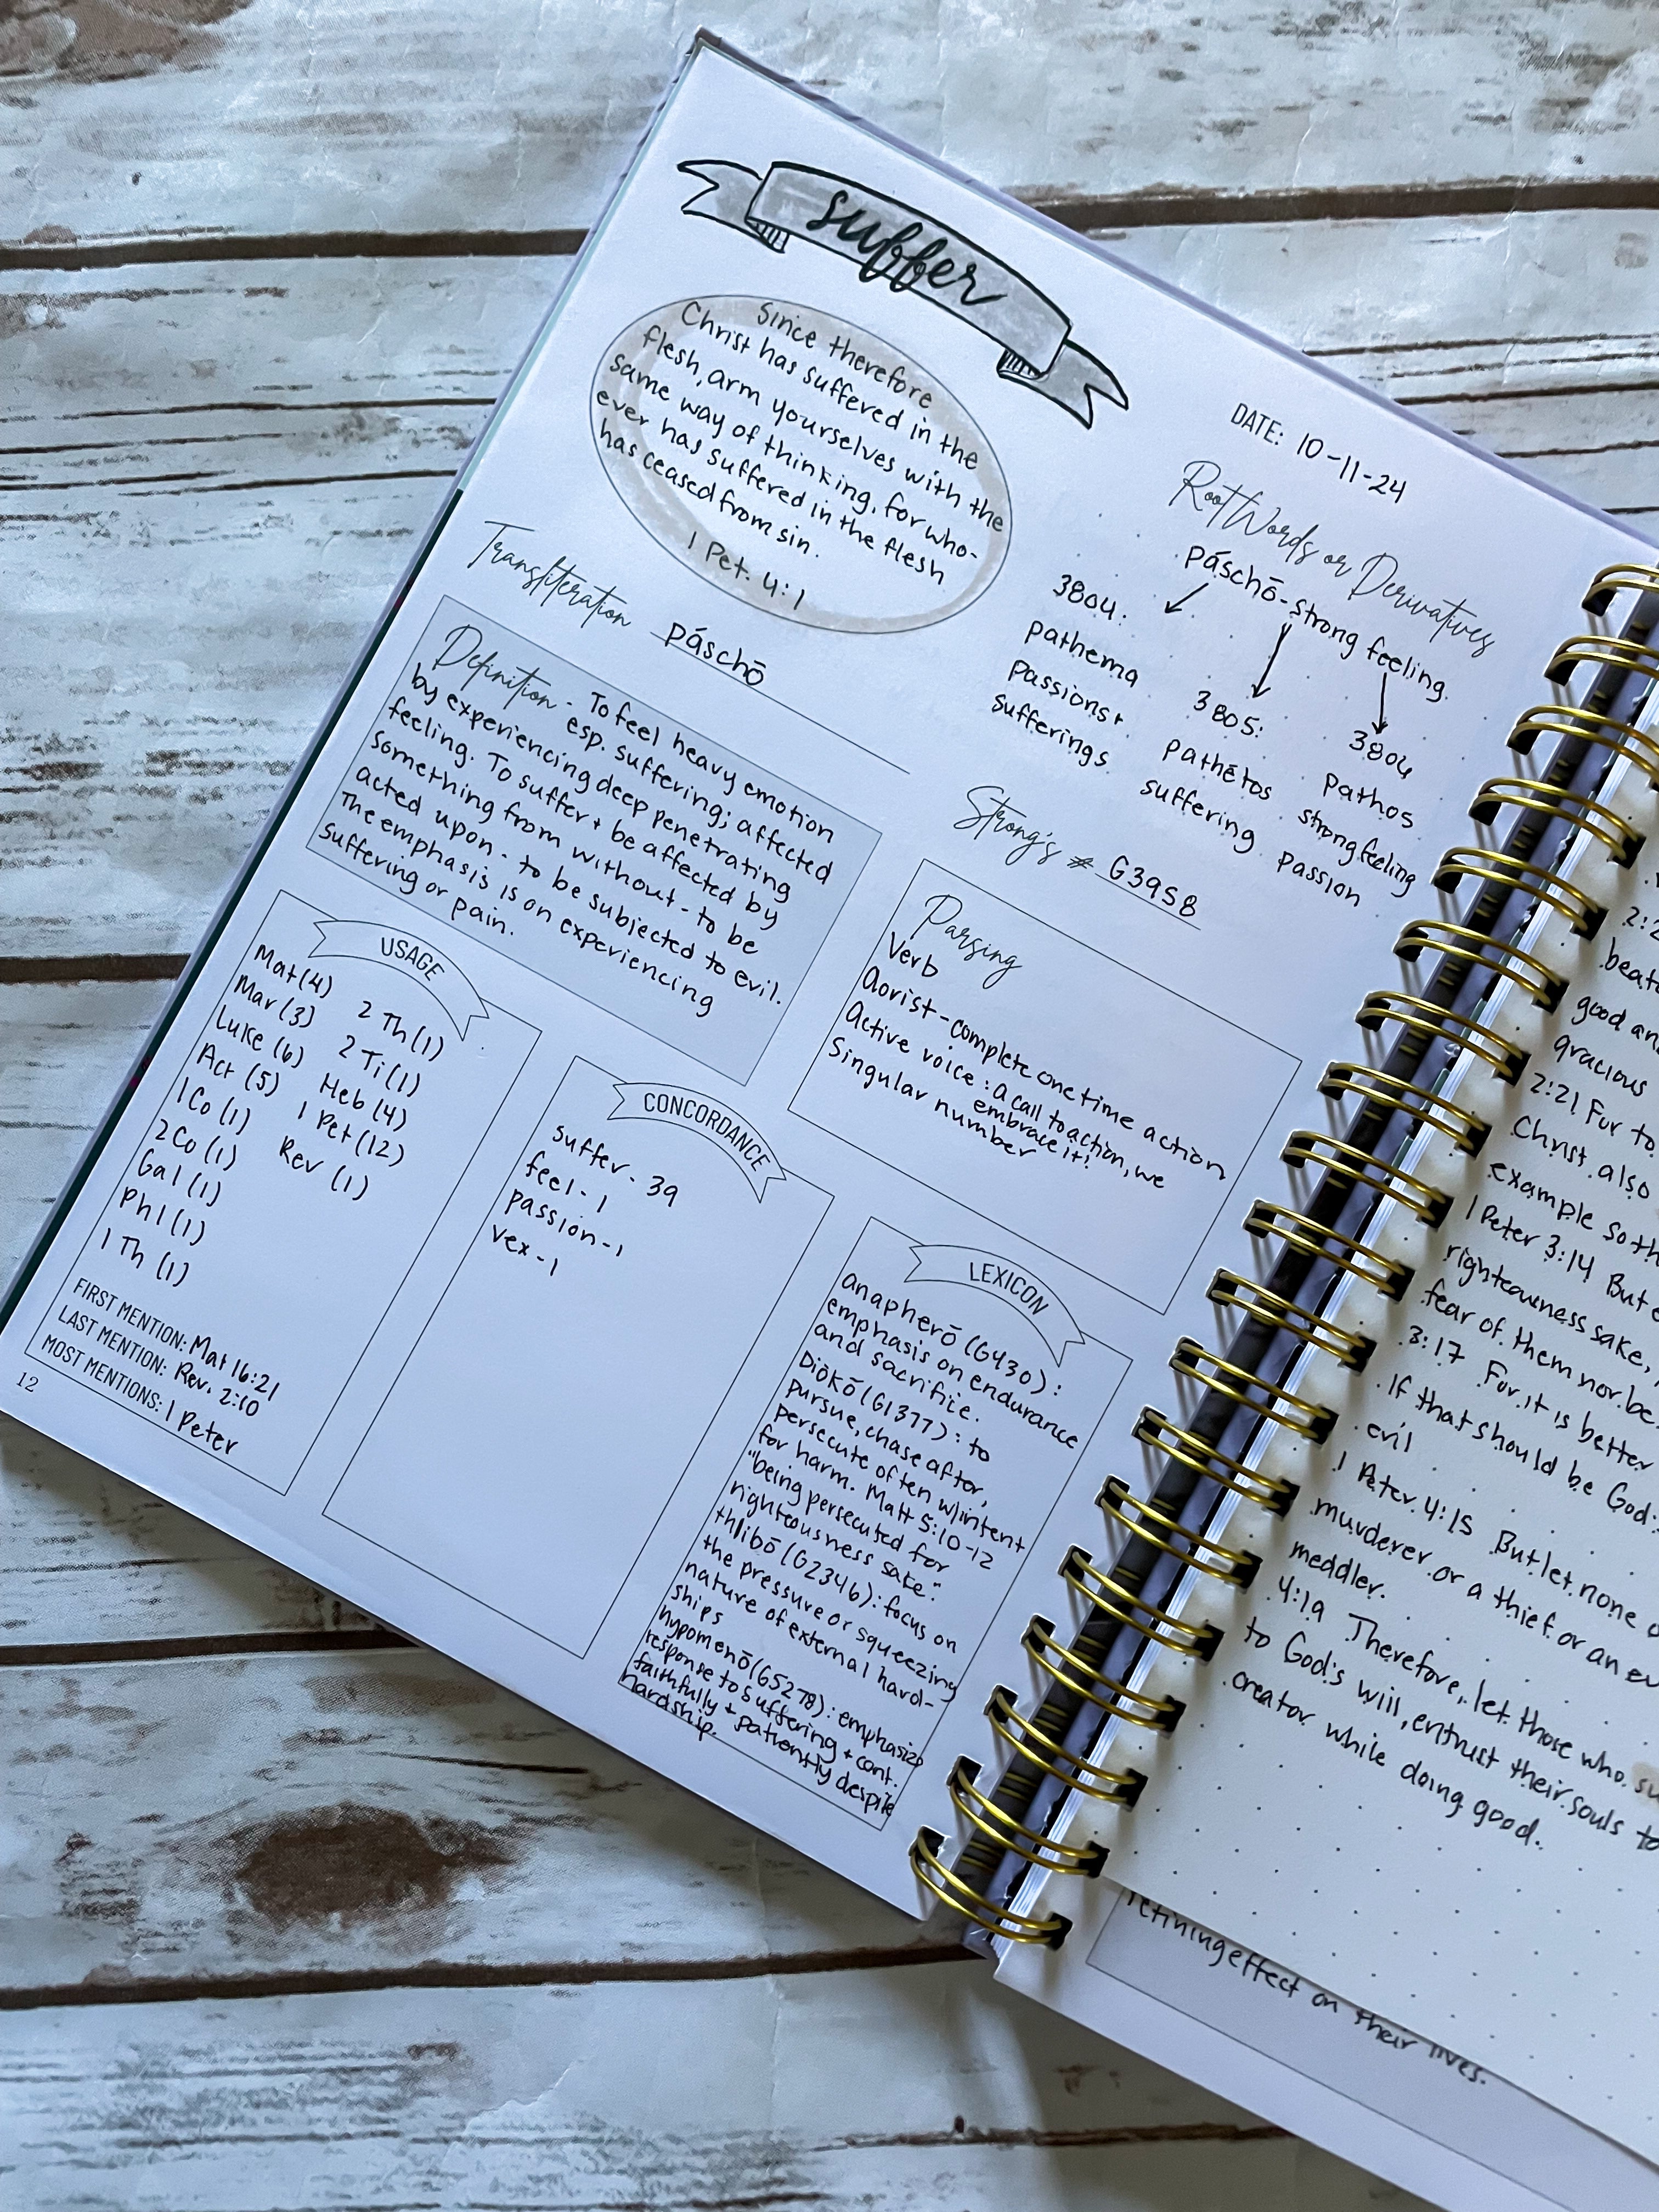 suffer
Since therefore
Christ has suffered in the
flesh, arm yourselves with the
same way of thinking, for who-
ever has suffered in the flesh
has ceased from sin.
1 Pet. 4:1
DATE: 10-11-24
Transliteration páschō
Root Words or Derivatives
páschō - strong feeling
3804:
pathema
passions +
sufferings
3805:
pathētos
suffering
3806
pathos
strong feeling
passion
Definition - To feel heavy emotion
esp. suffering; affected
by experiencing deep penetrating
feeling. To suffer + be affected by
something from without - to be
acted upon - to be subjected to evil.
The emphasis is on experiencing
suffering or pain.
Strong's # G3958
Parsing
Verb
Aorist - complete one time action
Active voice: a call to action, we
embrace it!
Singular number
USAGE
Mat (4)
Mar (3)
Luke (6)
Act (5)
1 Co (1)
2 Co (1)
Gal (1)
Phl (1)
1 Th (1)
2 Th (1)
2 Ti (1)
Heb (4)
1 Pet (12)
Rev (1)
FIRST MENTION: Mat 16:21
LAST MENTION: Rev. 2:10
MOST MENTIONS: 1 Peter
12
CONCORDANCE
suffer - 39
feel - 1
passion - 1
vex - 1
LEXICON
anapherō (G430):
emphasis on endurance
and sacrifice.
Diōkō (G1377): to
pursue, chase after,
persecute often w/intent
for harm. Matt 5:10-12
"being persecuted for
righteousness sake."
thlibō (G2346): focus on
the pressure or squeezing
nature of external hard-
ships
hypomenō (G5278): emphasize
response to suffering + cont.
faithfully + patiently despite
hardship.
2:2
beat
good an
gracious
2:21 For to
Christ also
example so th
1 Peter 3:14 But e
righteousness sake,
fear of them nor be
3:17 For it is better
if that should be God's
evil
1 Peter 4:15 But let none o
murderer or a thief or an ev
meddler.
4:19 Therefore, let those who su
to God's will, entrust their souls to
creator while doing good.
refining effect on their lives.